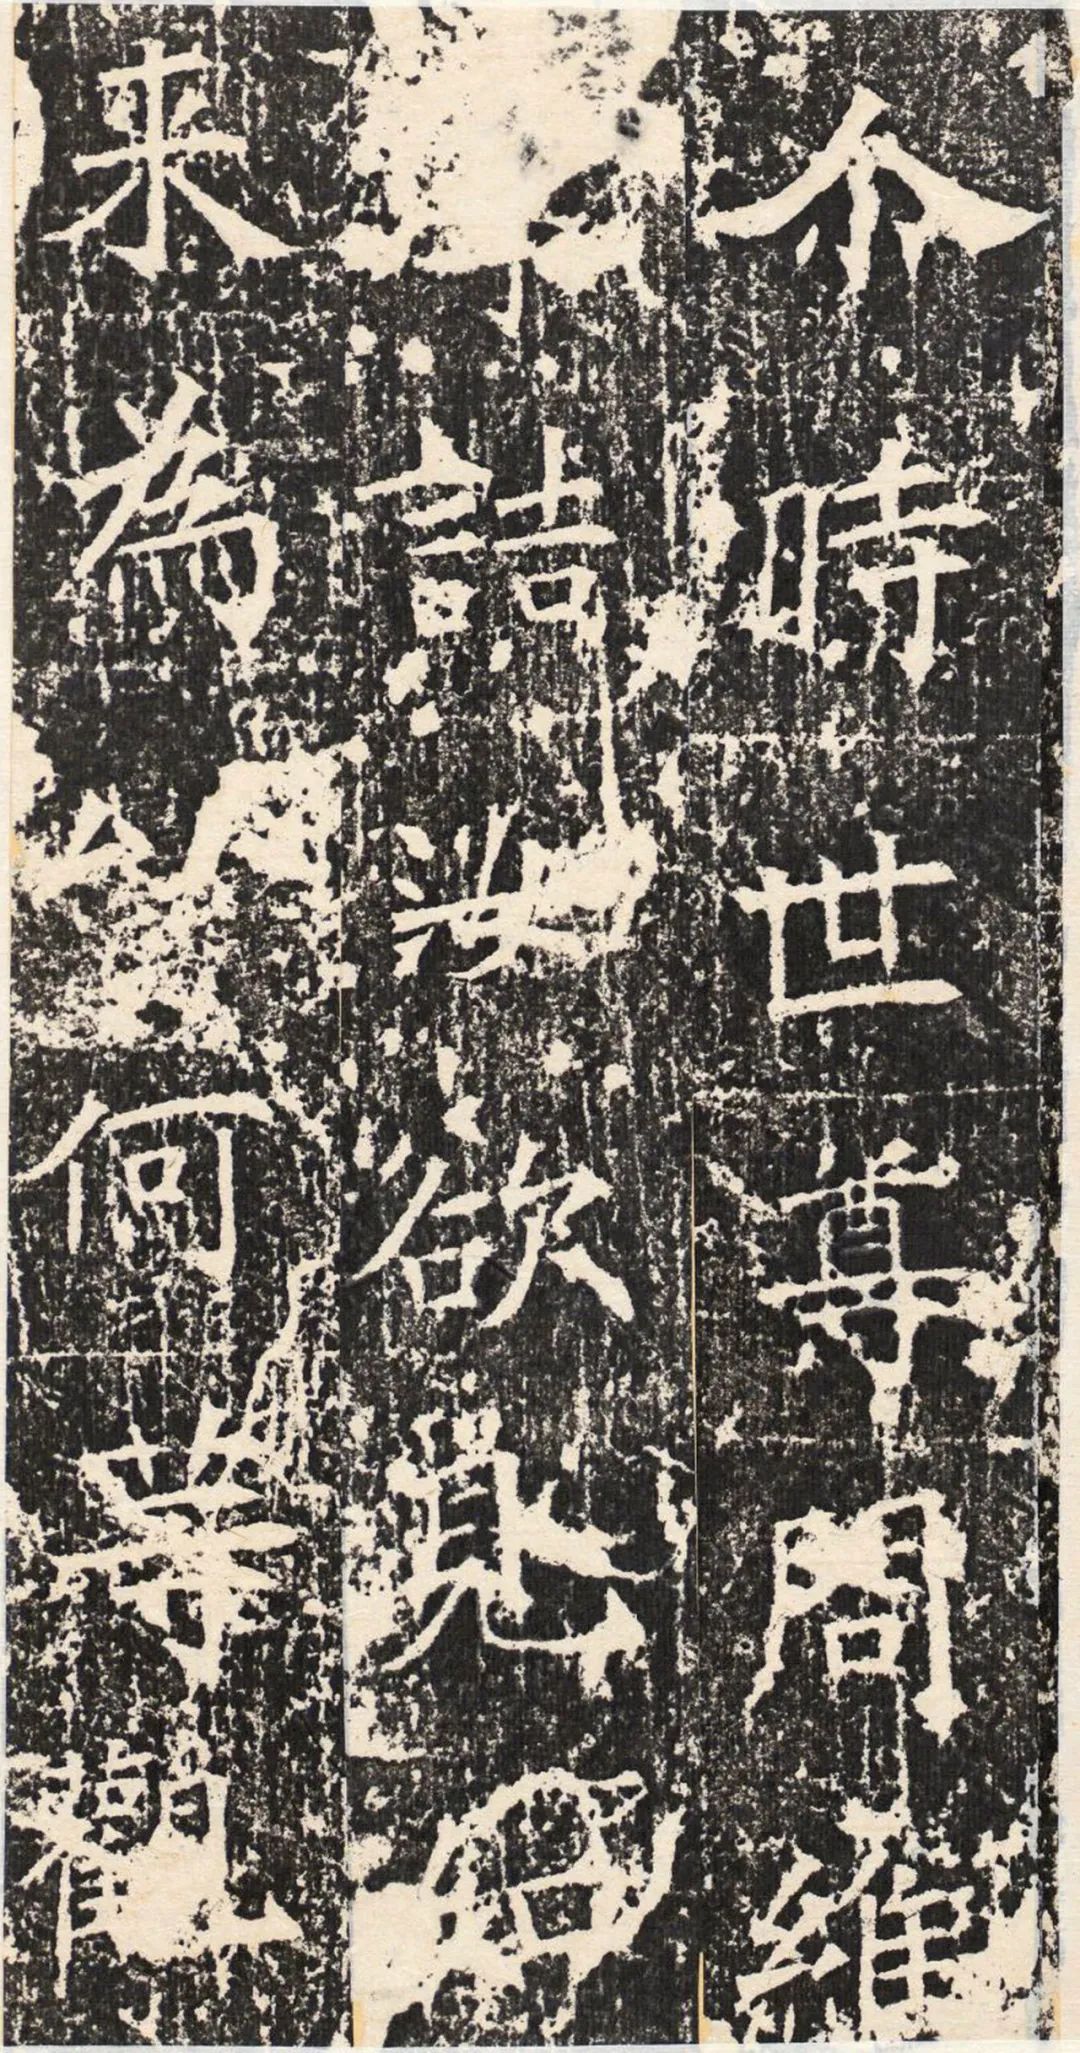 尒時世尊問維
詰汝欲見
來為何等觀